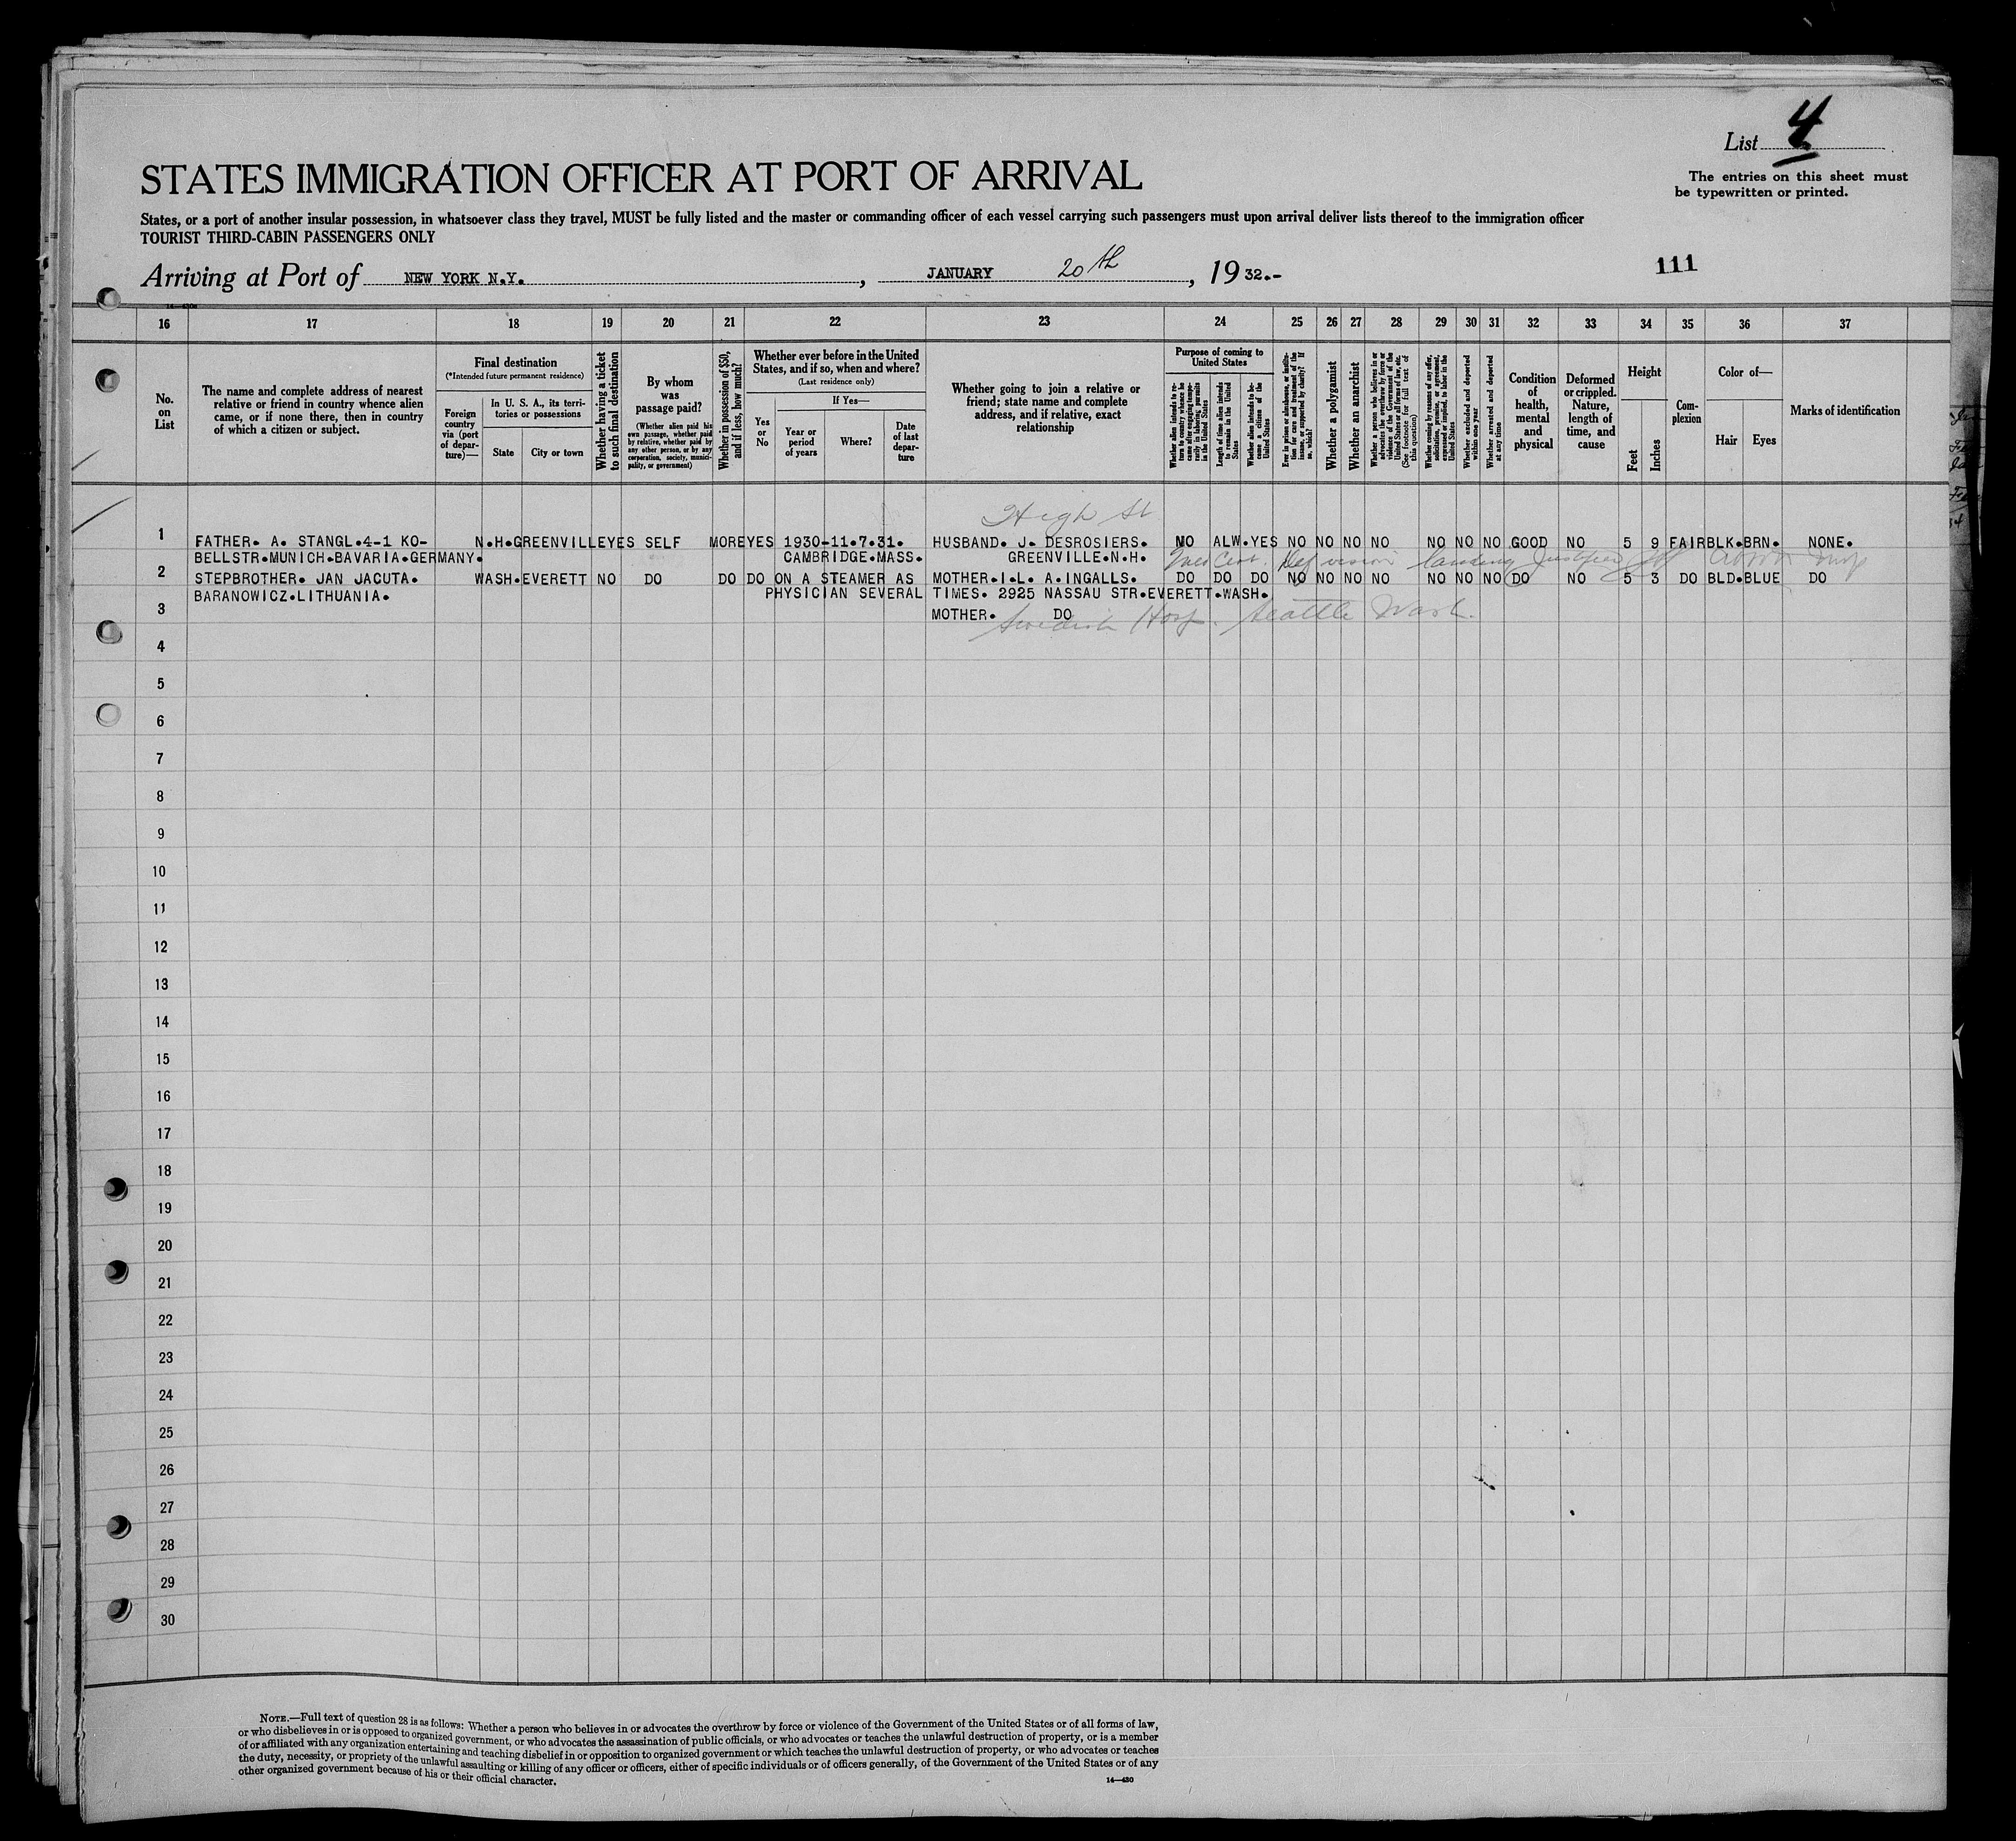 List 4
STATES IMMIGRATION OFFICER AT PORT OF ARRIVAL
The entries on this sheet must
be typewritten or printed.
States, or a port of another insular possession, in whatsoever class they travel, MUST be fully listed and the master or commanding officer of each vessel carrying such passengers must upon arrival deliver lists thereof to the immigration officer
TOURIST THIRD-CABIN PASSENGERS ONLY
Arriving at Port of NEW YORK N.Y., JANUARY 20th, 19 32.-
111
16 17 18 19 20 21 22 23 24 25 26 27 28 29 30 31 32 33 34 35 36 37
No. on List
The name and complete address of nearest relative or friend in country whence alien came, or if none there, then in country of which a citizen or subject.
Final destination
(*Intended future permanent residence)
Foreign country via (port of departure)—
In U. S. A., its territories or possessions
State
City or town
Whether having a ticket to such final destination
By whom was passage paid?
(Whether alien paid his own passage, whether paid by relative, whether paid by any other person, or by any corporation, society, municipality, or government)
Whether in possession of $50, and if less, how much?
Whether ever before in the United States, and if so, when and where?
(Last residence only)
Yes or No
If Yes—
Year or period of years
Where?
Date of last departure
Whether going to join a relative or friend; state name and complete address, and if relative, exact relationship
Purpose of coming to United States
Length of time alien intends to remain in the United States
Whether alien intends to become a citizen of the United States
Ever in prison or almshouse, or institution for care and treatment of the insane, or supported by charity? If so, which?
Whether a polygamist
Whether an anarchist
Whether excluded and deported within one year
Whether arrested and deported at any time
Condition of health, mental and physical
Deformed or crippled. Nature, length of time, and cause
Height
Feet
Inches
Complexion
Color of—
Hair
Eyes
Marks of identification
High St
1 FATHER. A. STANGL.4-1 KO- N.H.GREENVILLE YES SELF MORE YES 1930-11.7.31. HUSBAND. J. DESROSIERS. NO ALW.YES NO NO NO NO NO NO NO GOOD NO 5 9 FAIR BLK.BRN. NONE.
BELLSTR.MUNICH.BAVARIA.GERMANY. CAMBRIDGE.MASS. GREENVILLE.N.H.
2 STEPBROTHER. JAN JACUTA. WASH.EVERETT NO DO DO DO ON A STEAMER AS MOTHER.I.L. A.INGALLS. DO DO DO NO NO NO NO NO NO NO DO NO 5 3 DO BLD.BLUE DO
BARANOWICZ.LITHUANIA. PHYSICIAN SEVERAL TIMES. 2925 NASSAU STR.EVERETT.WASH.
3 MOTHER. DO
Swedish Hosp. Seattle Wash.
4
5
6
7
8
9
10
11
12
13
14
15
16
17
18
19
20
21
22
23
24
25
26
27
28
29
30
NOTE.—Full text of question 28 is as follows: Whether a person who believes in or advocates the overthrow by force or violence of the Government of the United States or of all forms of law,
or who disbelieves in or is opposed to organized government, or who advocates the assassination of public officials, or who advocates or teaches the unlawful destruction of property, or is a member
of or affiliated with any organization entertaining and teaching disbelief in or opposition to organized government or which teaches the unlawful destruction of property, or who advocates or teaches
the duty, necessity, or propriety of the unlawful assaulting or killing of any officer or officers, either of specific individuals or of officers generally, of the Government of the United States or of any
other organized government because of his or their official character.
14—430